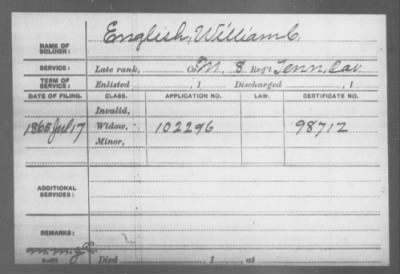 English, William C.
NAME OF SOLDIER:
SERVICE: Late rank, Co. M. 8 Reg't Tenn, Cav
TERM OF SERVICE: Enlisted , 1 Discharged , 1
DATE OF FILING. CLASS. APPLICATION NO. LAW. CERTIFICATE NO.
Invalid,
1865 Jul 17 Widow, 102296 98712
Minor,
ADDITIONAL SERVICES:
REMARKS:
Died , 1 , at